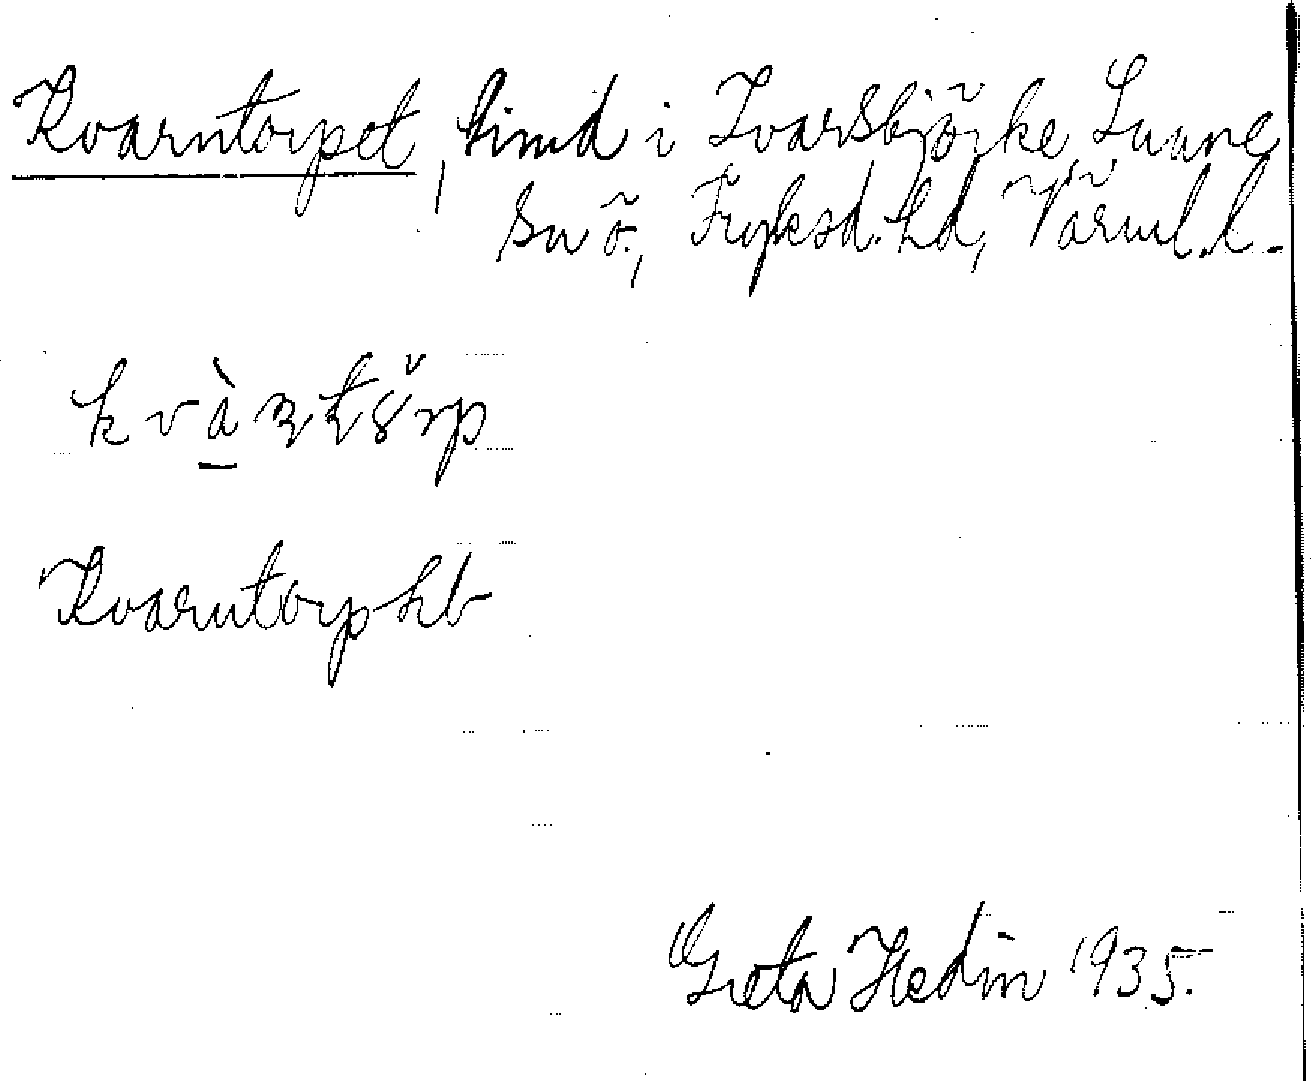 Kvarntorpet, hmd i Ivarsbjörke, Sunne
sn ö., Fryksd. hd, Värml. l.
Kvarntorp hb
Greta Hedin 1935.